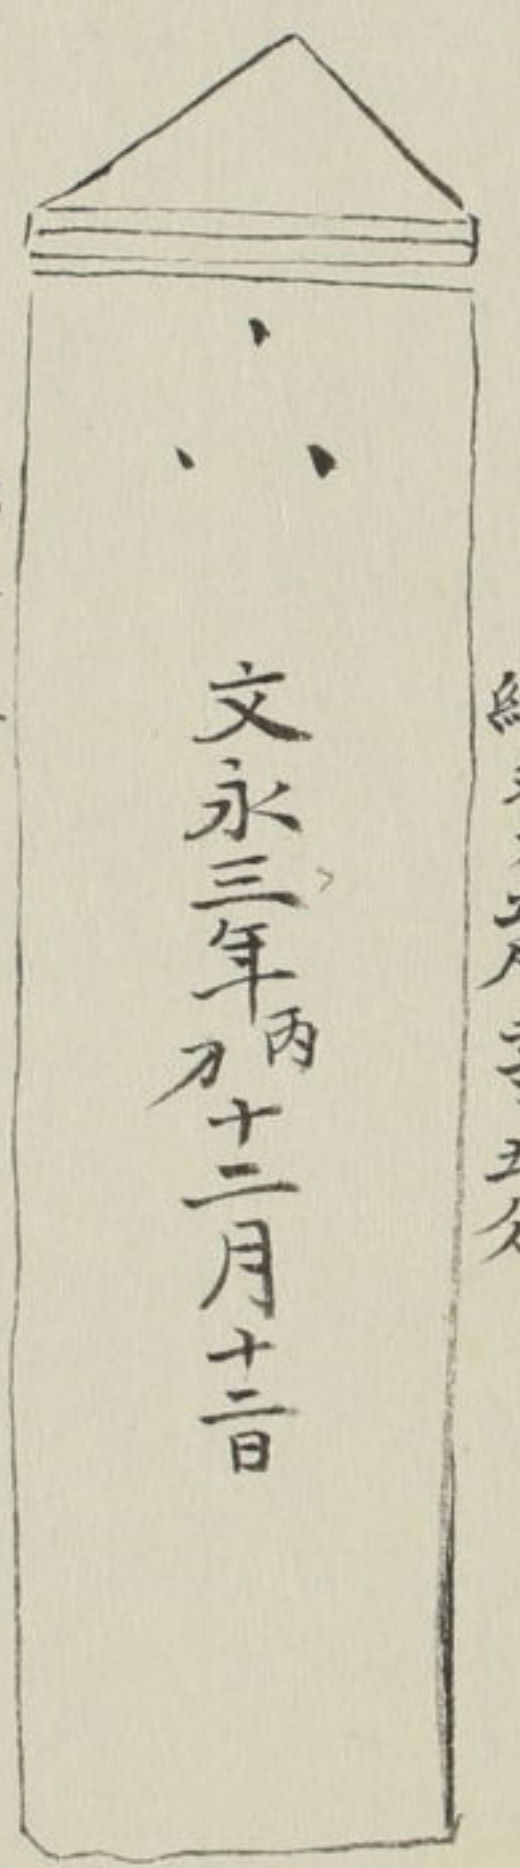 文永三年丙刁十二月十二日